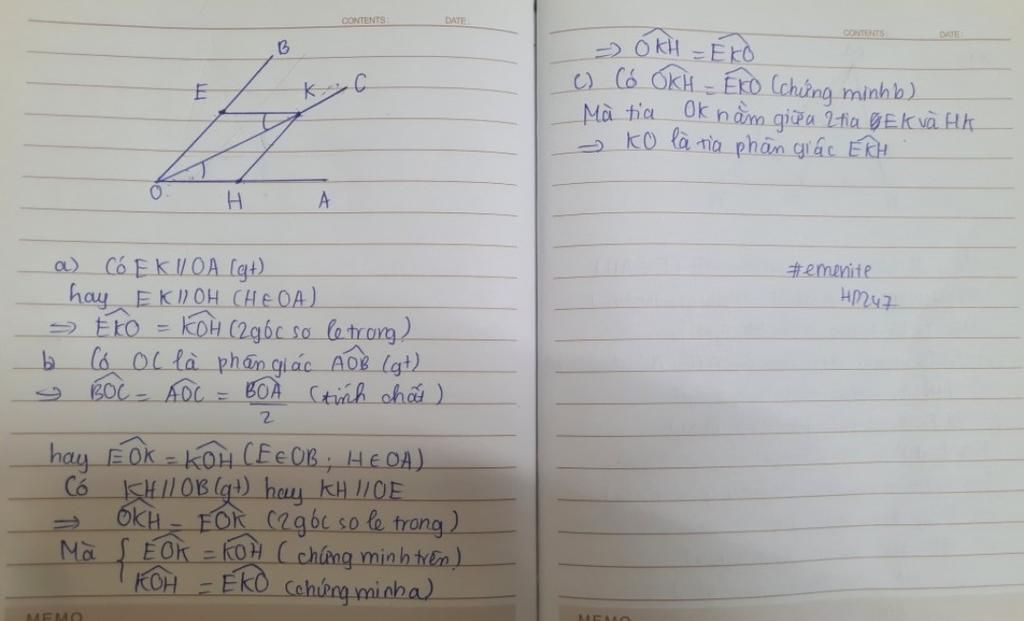 CONTENTS: DATE:
B
E
K C
O H A
a) Có EK // OA (gt)
hay EK // OH (H∈OA)
=> EKO = KOH (2 góc so le trong)
b Có OC là phân giác AOB (gt)
=> BOC = AOC = BOA/2 (tính chất)
hay EOK = KOH (E∈OB ; H∈OA)
Có KH // OB (gt) hay KH // OE
=> OKH = EOK (2 góc so le trong)
Mà { EOK = KOH (chứng minh trên)
KOH = EKO (chứng minh a)
MEMO
CONTENTS: DATE:
=> OKH = EKO
c) Có OKH = EKO (chứng minh b)
Mà tia OK nằm giữa 2 tia EK và HK
=> KO là tia phân giác EKH
#emenite
HD247